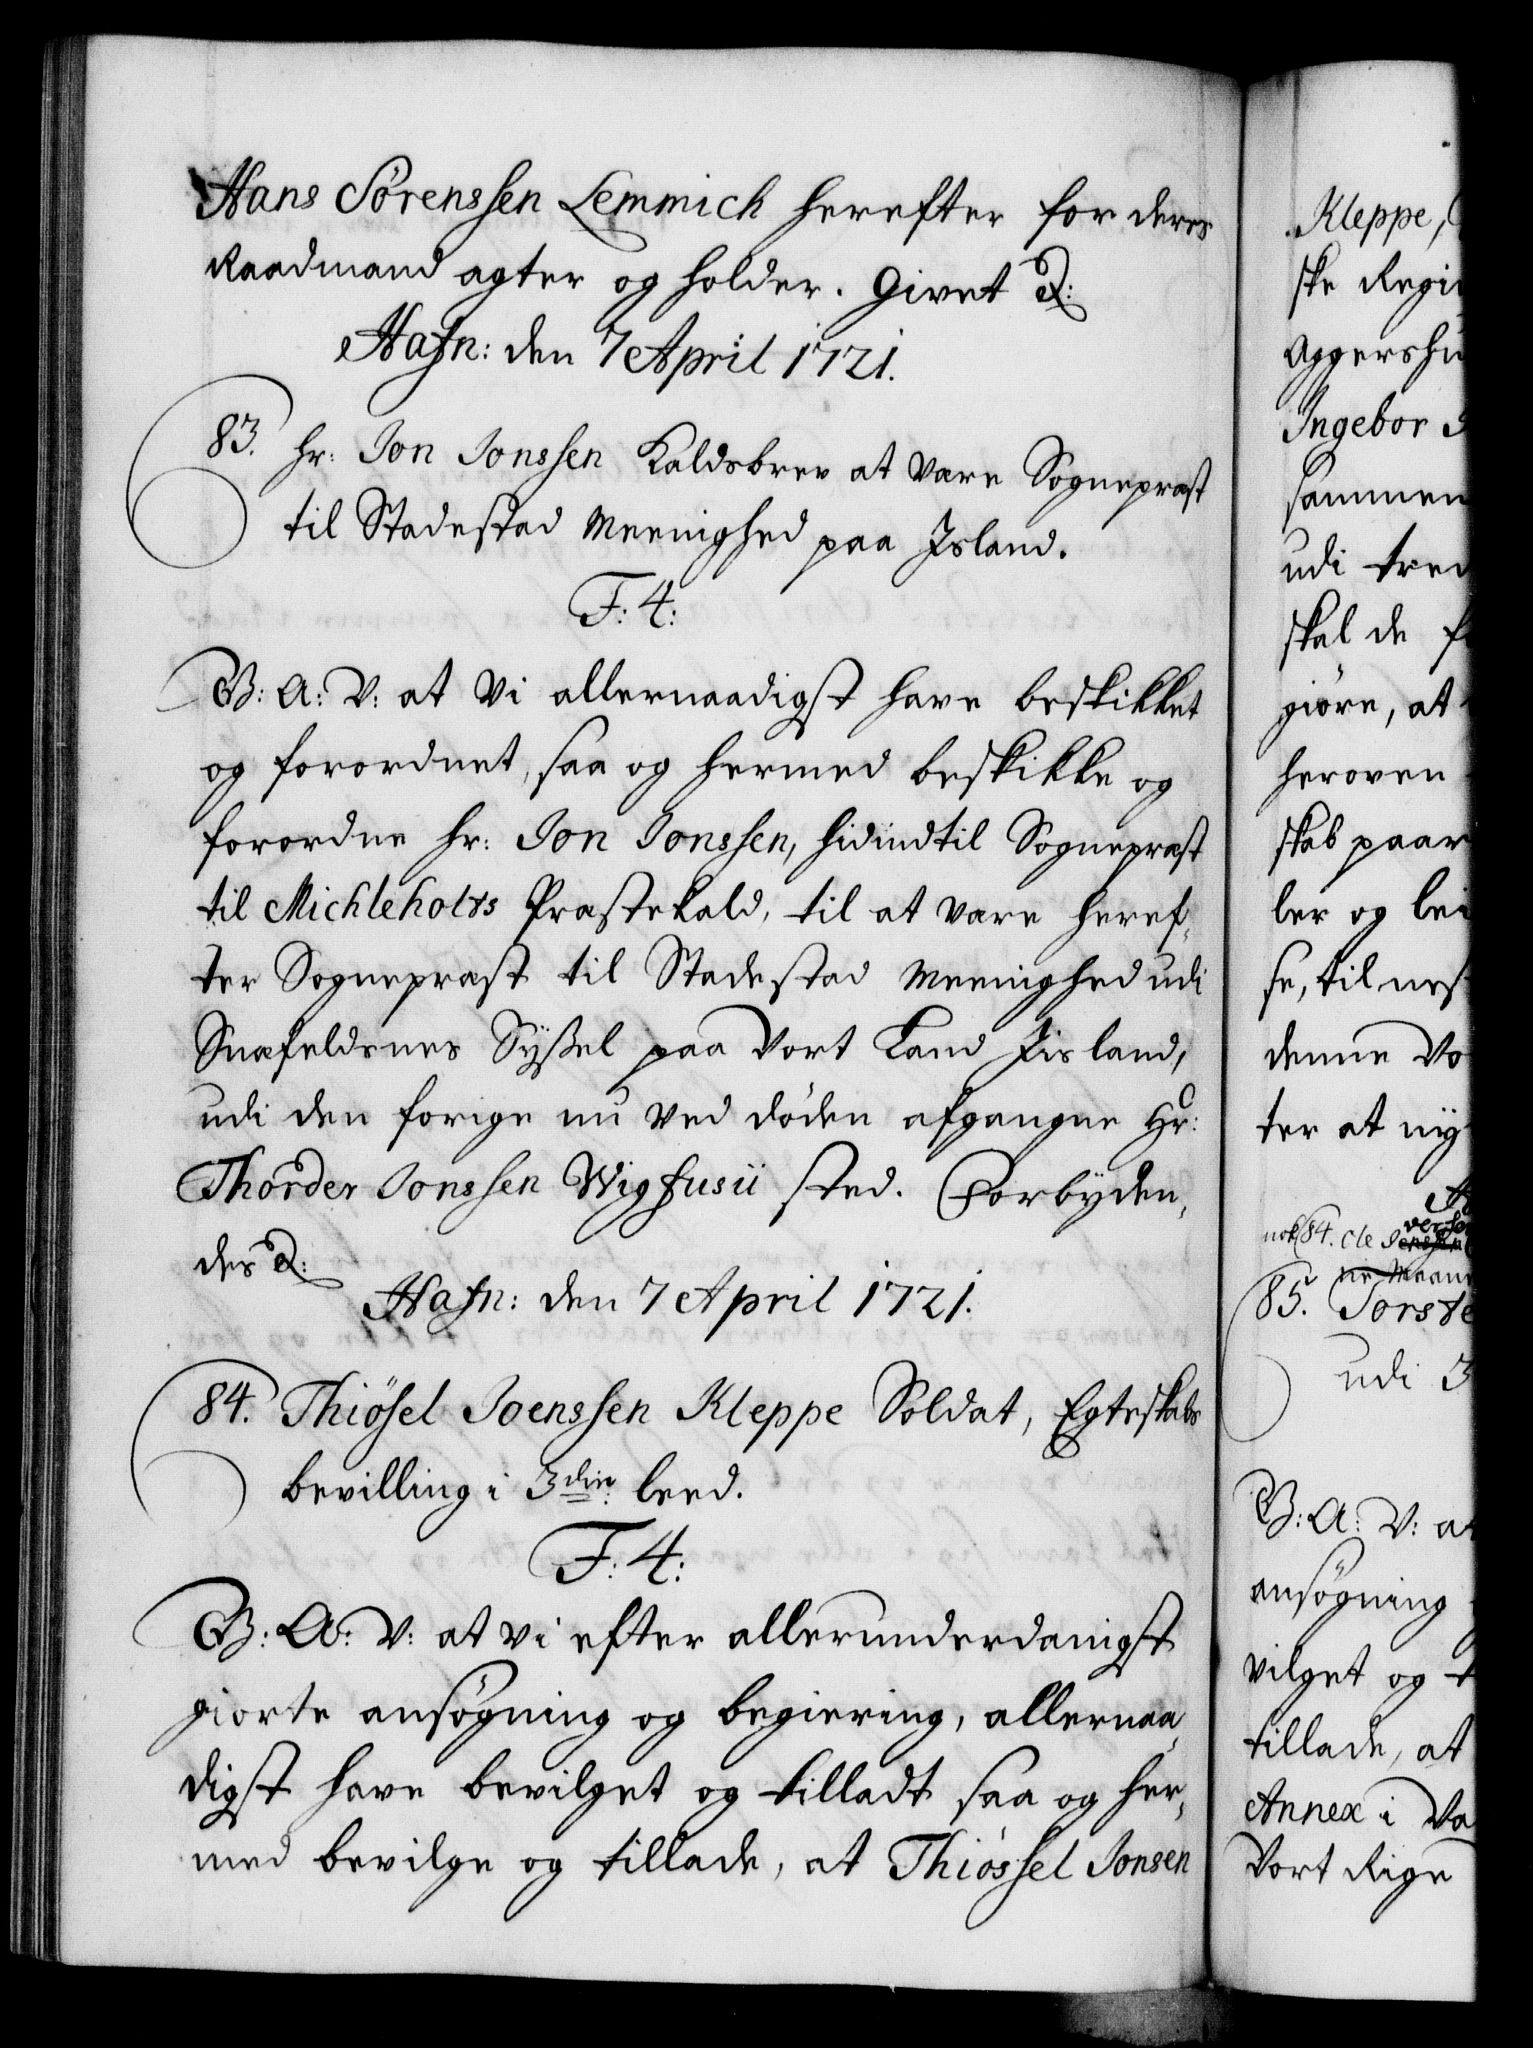 Hans Sörenssen Lemmich herefter for deres
Raadmand agter og holder. Givet &:
Hafn: den 7 April 1721.
83. hr: Jon Jonssen Kaldsbrev at være Sognepræst
til Stadestad Meenighed paa Island.
F: 4:
G: A: V: at Vi allernaadigst have beskikket
og forordnet, saa og hermed beskikke og
forordne hr: Jon Jonssen, hidindtil Sognepræst
til Michleholts Præstekald, til at være heref-
ter Sognepræst til Stadestad Meenighed udi
Snæfeldsnes Sÿssel paa Vort Land Jisland,
udi den forige nu ved döden afgangne Hr:
Thorder Jonssen Wigfusii sted. Forbÿden-
des &:
Hafn: den 7 April 1721.
84. Thiösel Joenssen Kleppe Soldat, Egteskabs
bevilling i 3die leed.
F: 4:
G: A: V: at Vi efter allerunderdanigst
giorte ansögning og begiering, allernaa-
digst have bevilget og tilladt saa og her-
med bevilge og tillade, at Thiössel Jonsen
Kleppe,
ske Regi
Aggershu
Ingebor
sammen
udi tred
skal de
giöre, at
heroven
skab paa
ler og lei
se, til nes
denne Vo
ter at nÿ
nok 84.
85. Torste
udi 3
G: A: V: at
ansögning
vilget og t
tillade, at
Annex i Va
Vort Rige